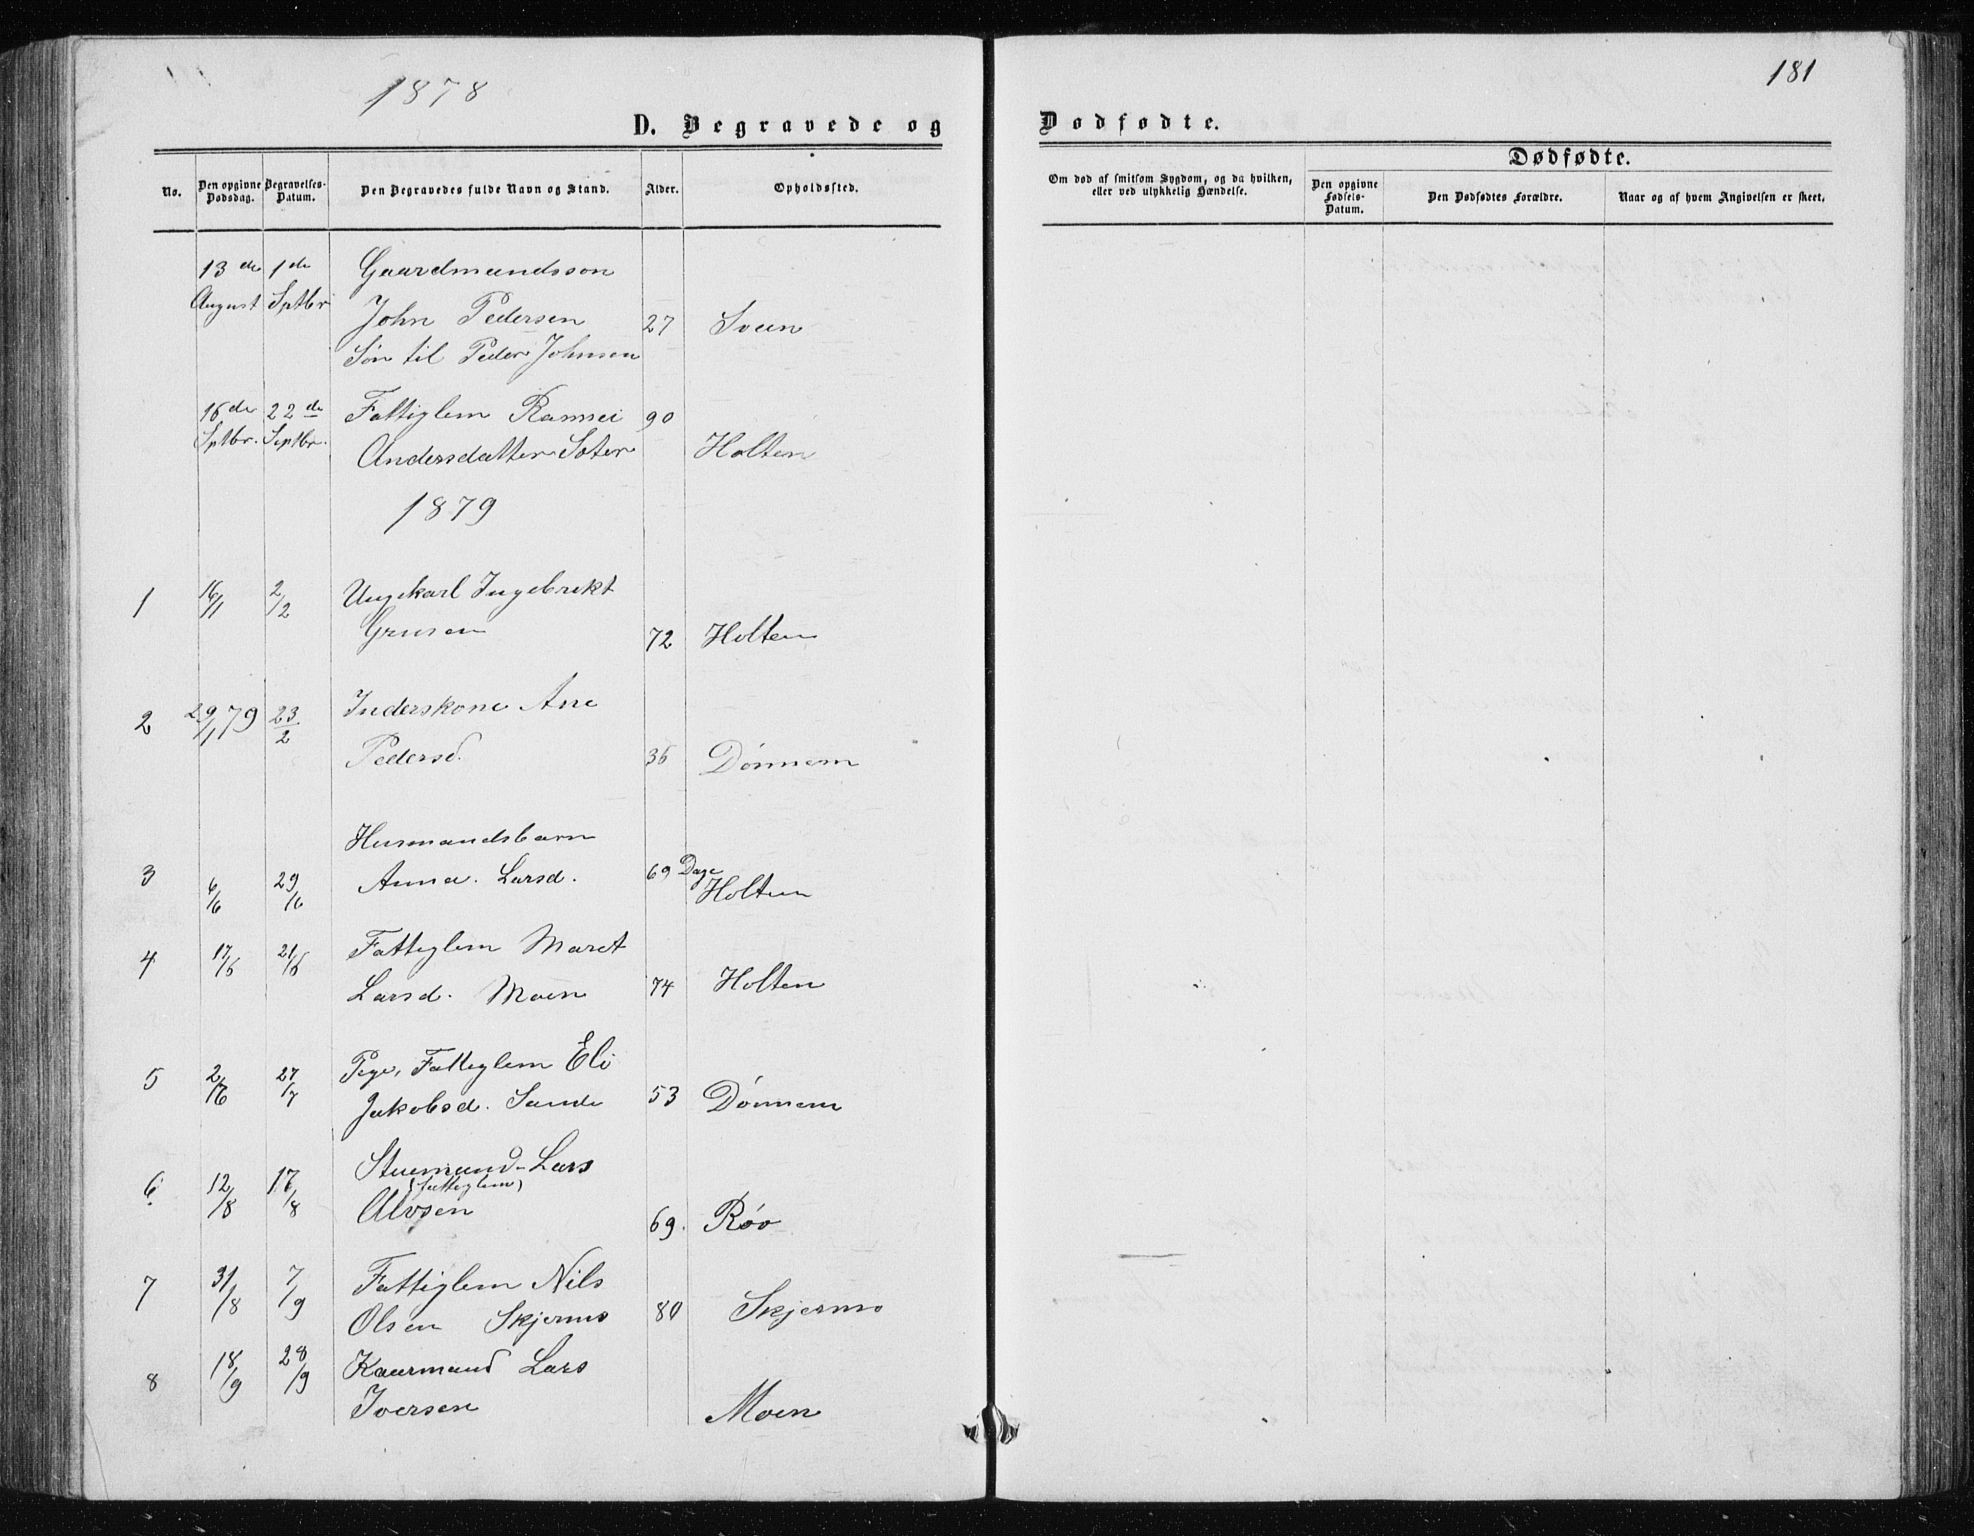 1878
181
D. Begravede og Dødfødte.
No.
Den opgivne Dødsdag.
Begravelses-Datum.
Den Begravedes fulde Navn og Stand.
Alder.
Opholdssted.
Om død af smitsom Sygdom, og da hvilken, eller ved ulykkelig Hændelse.
Dødfødte.
Den opgivne Fødsels-Datum.
Den Dødfødtes Forældre.
Naar og af hvem Angivelsen er skeet.
13de 1de Gaardmandsson
August Sptbr John Pedersen 27 Sveen
Søn til Peder Johnsen
16de 22de Fattiglem Rannei 90
Sptbr. Septbr. Andersdatter Holten
1879
1 16/1 2/2 Ungkarl Ingebrikt
72 Holten
2 29/1 79 23/2 Inderskone Ane
Pedersd. 36 Dönnem
Husmandsbarn
3 6/6 29/6 Anna Larsd. 69 Dage Holten
4 17/6 21/6 Fattiglem Maret
Larsd. Moen 74 Holten
5 27/7 Pige, Fattiglem Eli
Jakobsd. Sande 53 Dönnem
6 12/8 17/8 Stuemand Lars
(fattiglem)
Alvsen 69. Röv
7 31/8 7/9 Fattiglem Nils
Olsen Skjermo 80 Skjermo
8 18/9 28/9 Kaarmand Lars
Iversen Moen